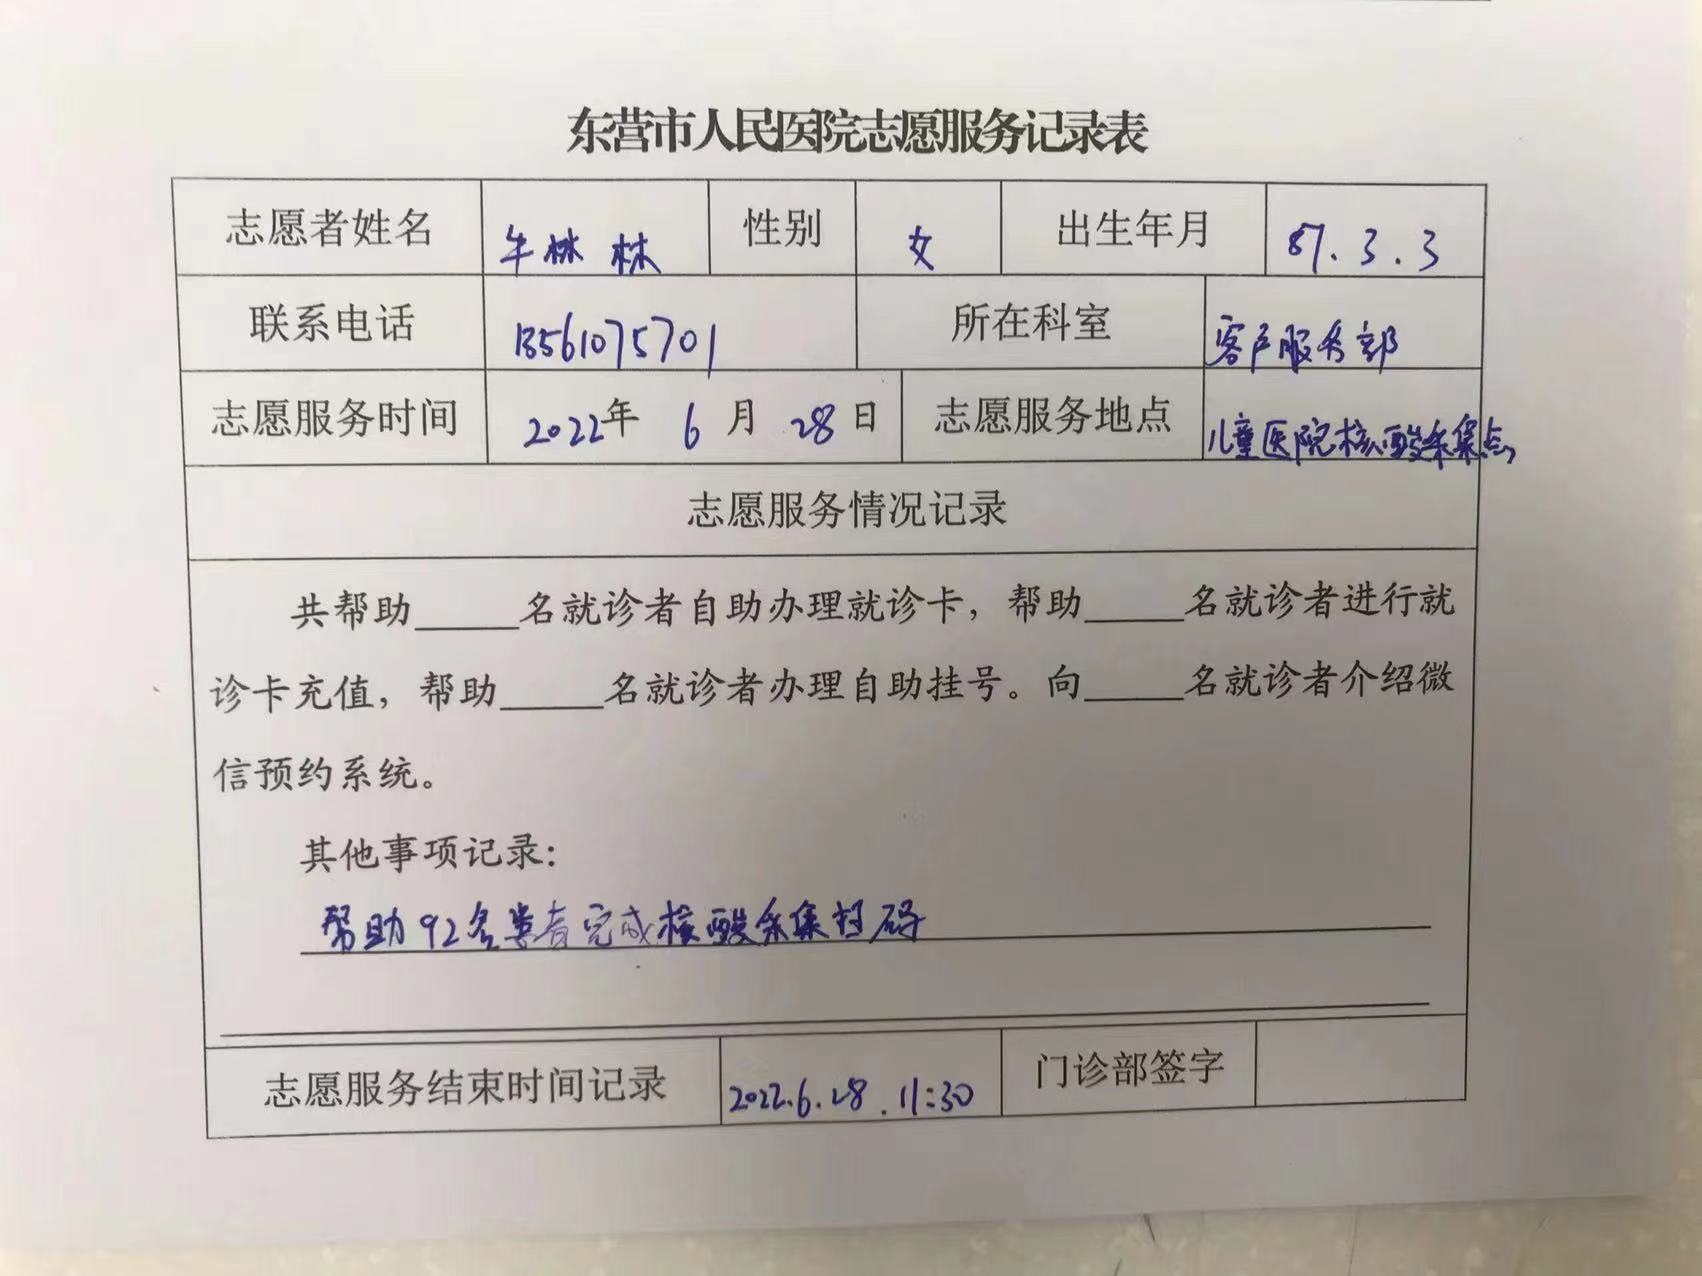 东营市人民医院志愿服务记录表
志愿者姓名 牛林林 性别 女 出生年月 87.3.3
联系电话 13561075701 所在科室 客户服务部
志愿服务时间 2022年 6月 28日 志愿服务地点 儿童医院核酸采集点
志愿服务情况记录
共帮助_____名就诊者自助办理就诊卡，帮助_____名就诊者进行就
诊卡充值，帮助_____名就诊者办理自助挂号。向_____名就诊者介绍微
信预约系统。
其他事项记录：
帮助92名患者完成核酸采集扫码
志愿服务结束时间记录 2022.6.28.11:30 门诊部签字